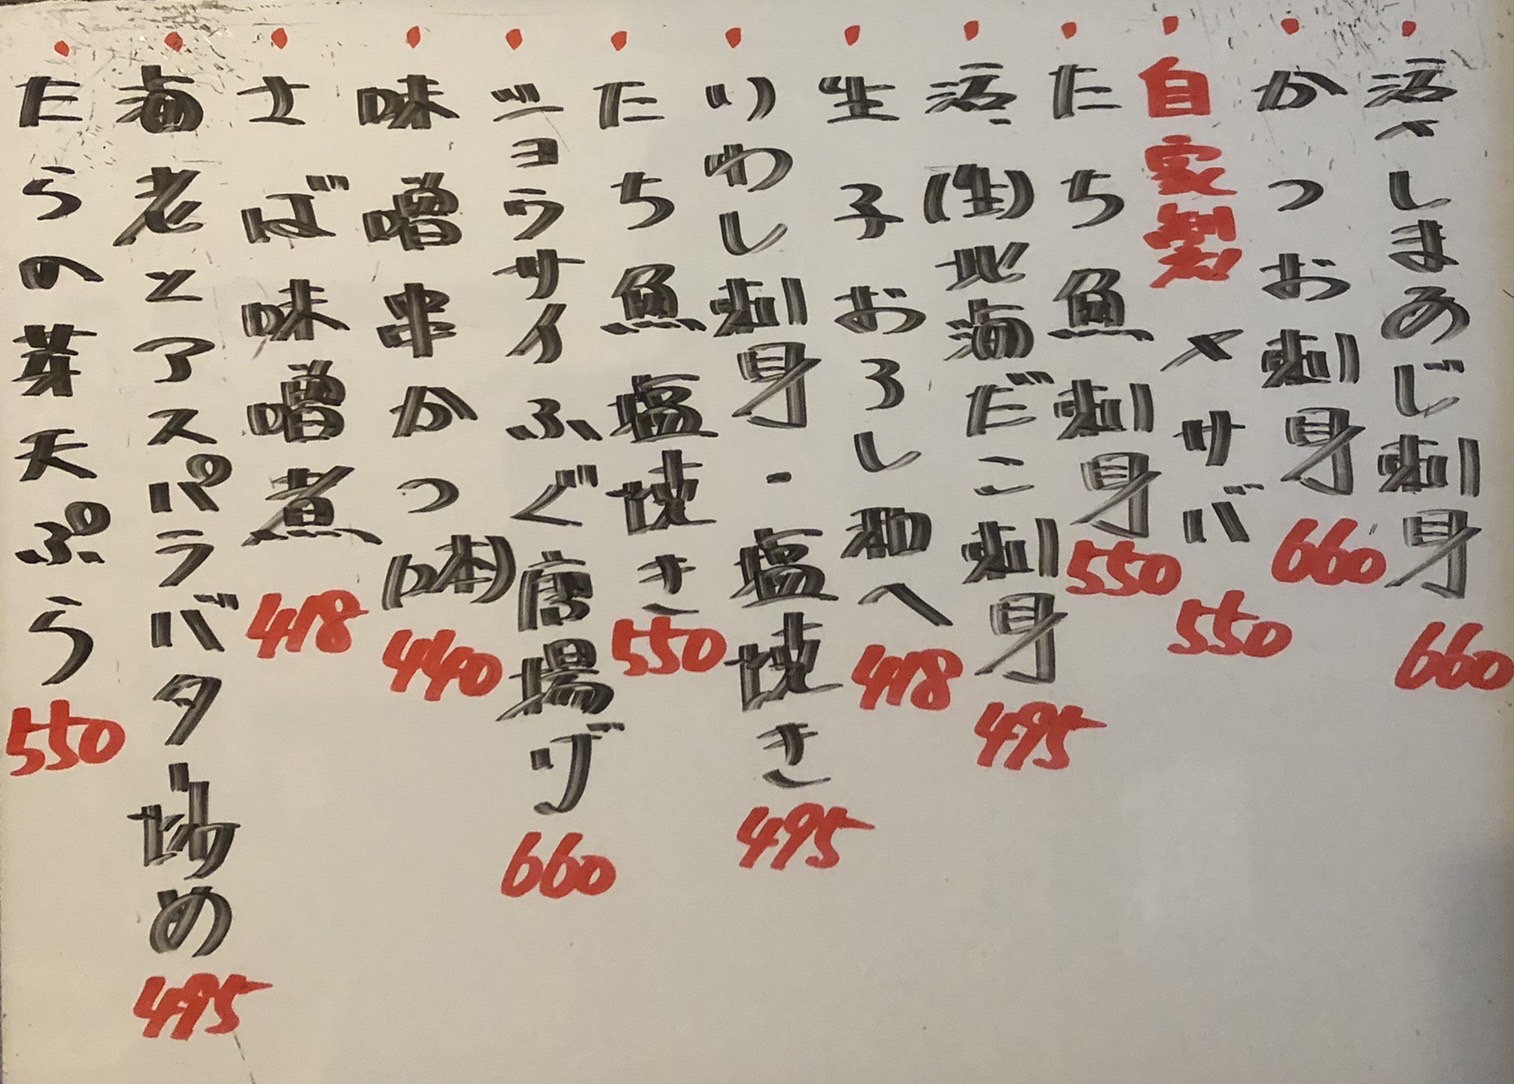 活〆しまあじ刺身 660
かつお刺身 660
自家製〆サバ 550
たち魚刺身 550
活〆(生)地海だこ刺身 495
生子おろし和へ 418
いわし刺身・塩焼き 495
たち魚塩焼き 550
ショウサイふぐ唐揚げ 660
味噌串かつ(2本) 440
さば味噌煮 418
海老とアスパラバター炒め 495
たらの芽天ぷら 550